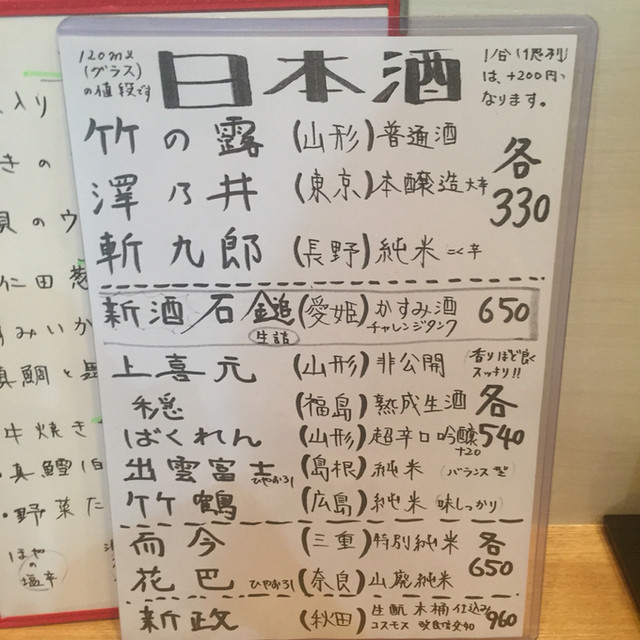 120ml
(グラス)
の値段です
日本酒
1合(1徳利)
は、+200円
なります。
竹の露 (山形) 普通酒
澤乃井 (東京) 本醸造 大辛
斬九郎 (長野) 純米 こく辛
各
330
新酒 石鎚 (愛姫) かすみ酒 650
生詰
チャレンジタンク
上喜元 (山形) 非公開 香りほど良く
スッキリ!!
穏 (福島) 熟成生酒
ばくれん (山形) 超辛口吟醸
+20
出雲富士 ひやおろし (島根) 純米 (バランス型)
竹鶴 (広島) 純米 (味しっかり)
各
540
而今 (三重) 特別純米
花巴 ひやおろし (奈良) 山廃純米
各
650
新政 (秋田) 生酛 木桶仕込み 960
コスモス
入り
きの
貝のウ
仁田葱
みいか
真鯛と
牛焼き
・真鱈白
・野菜た
ほや
の
塩辛